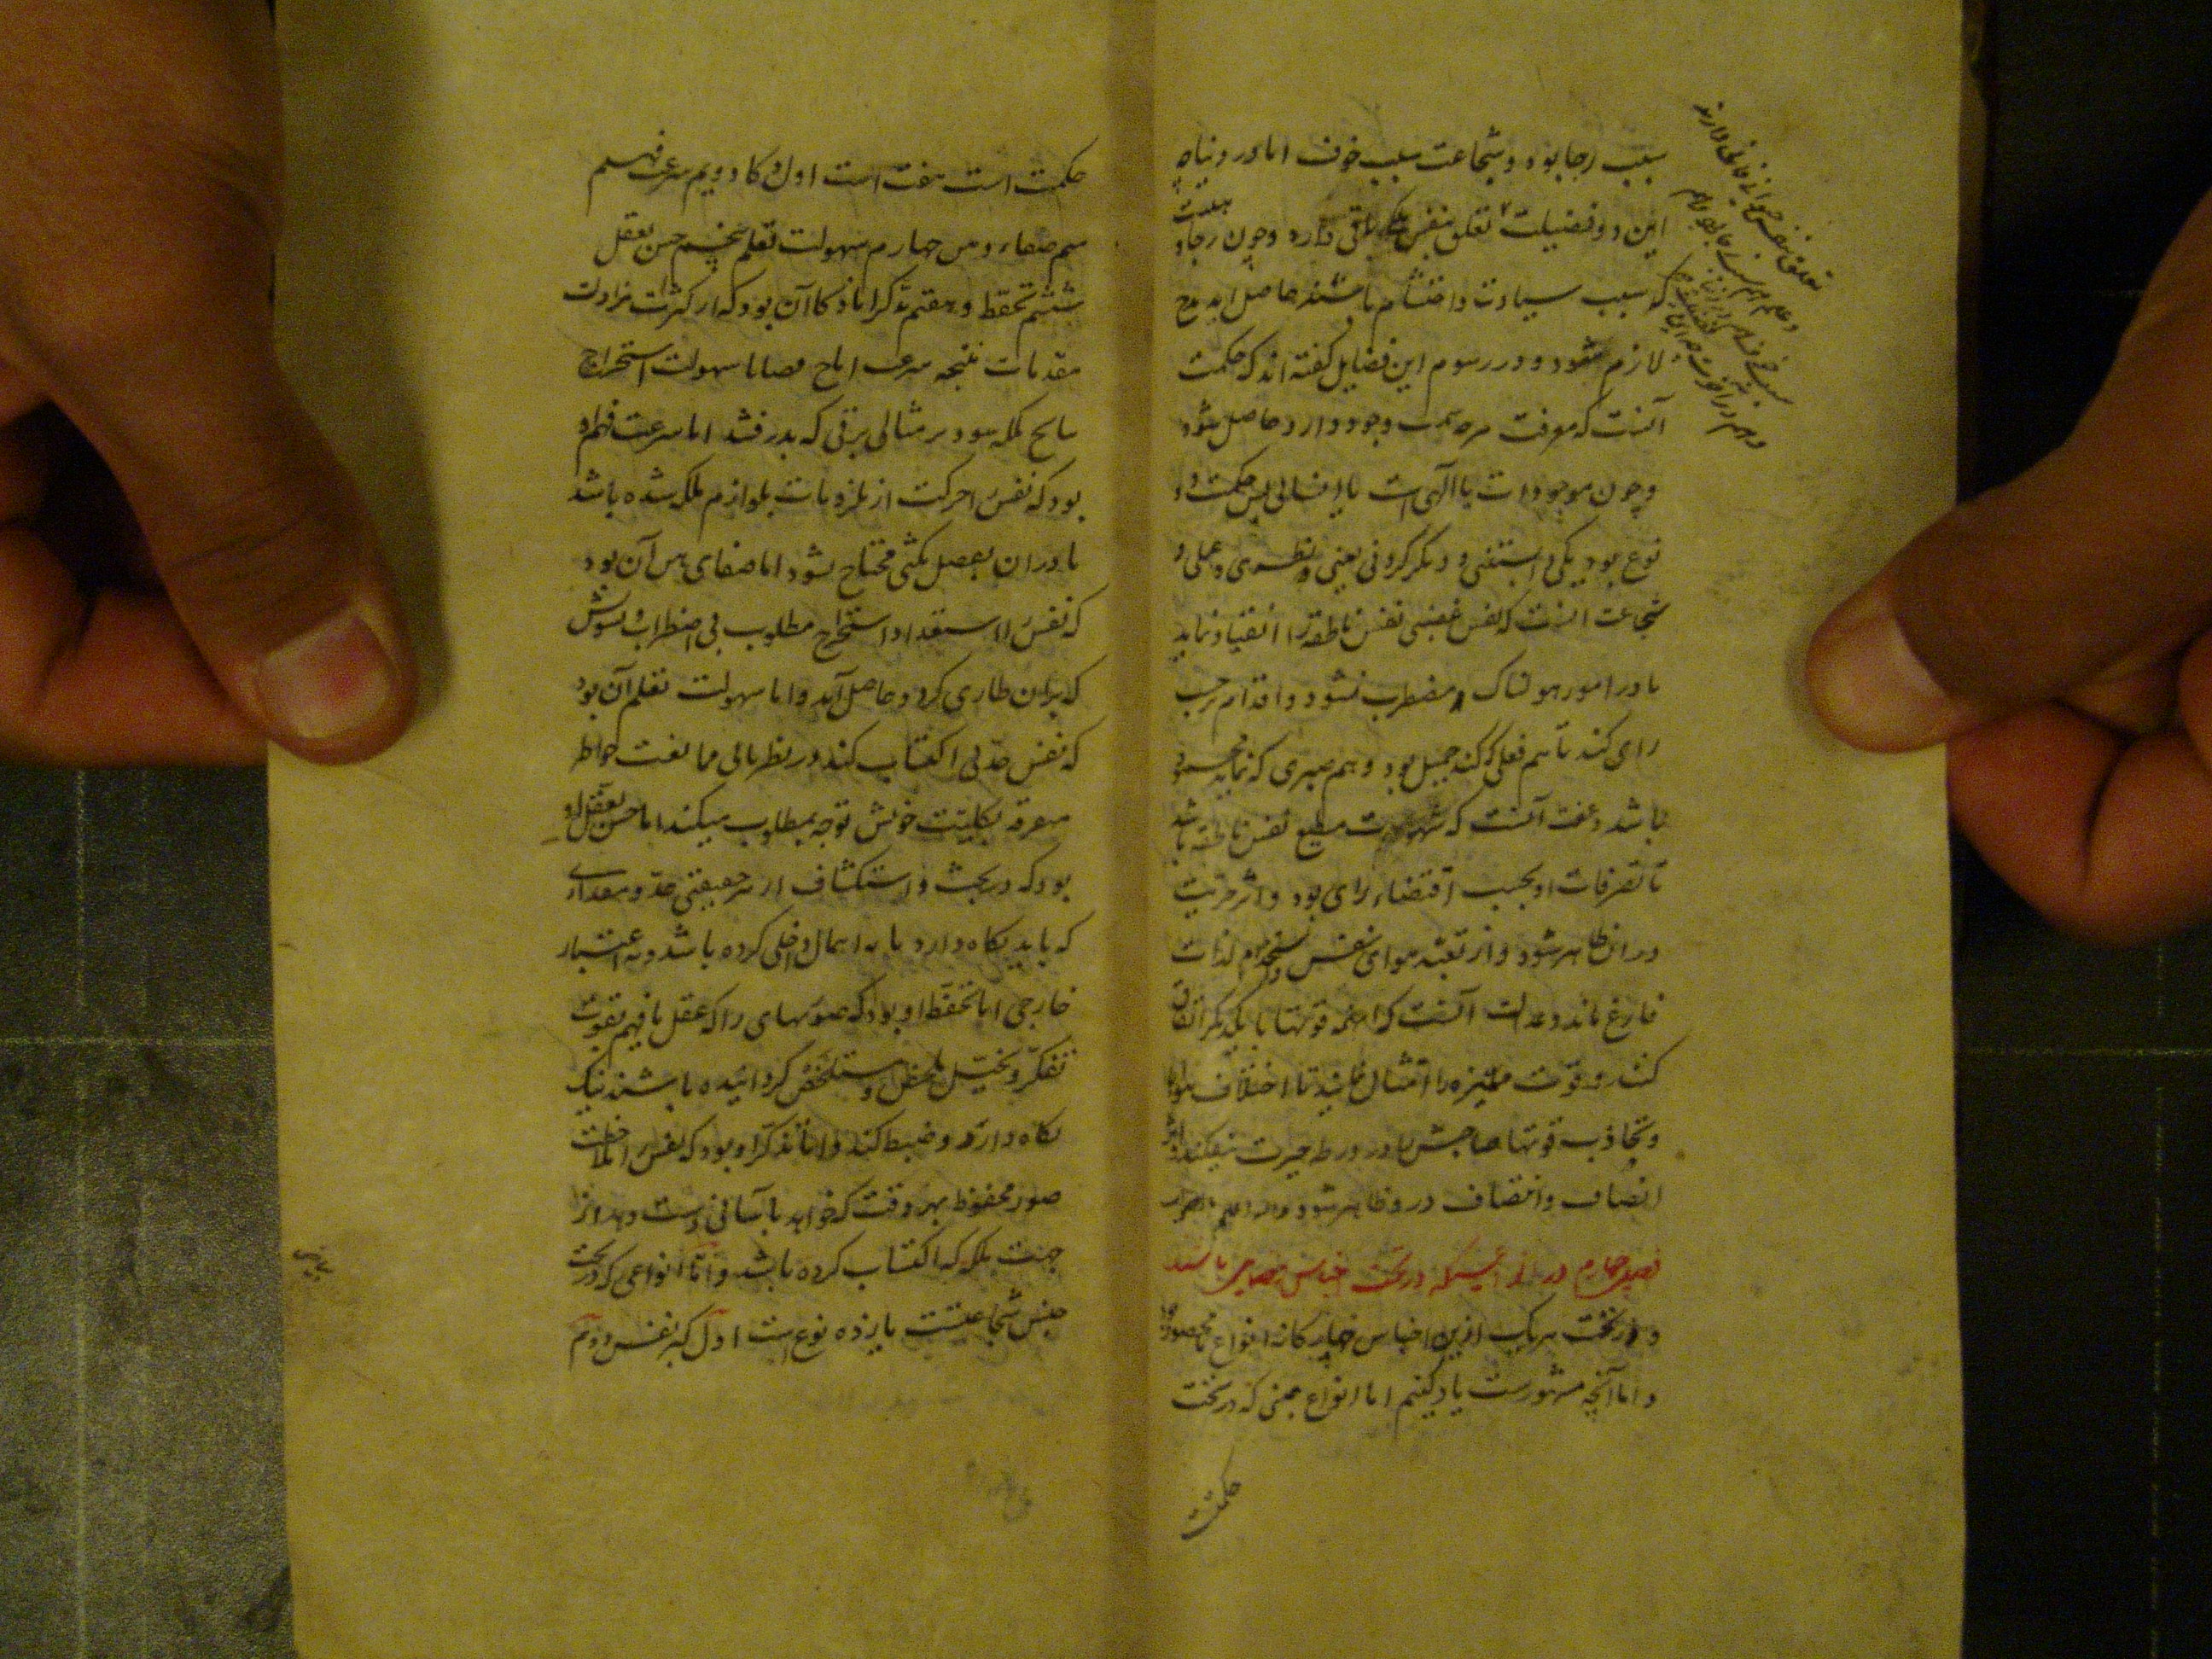 سبب رجا بود و شجاعت سبب خوف اما در دنیا چه
این دو فضیلت تعلق بنفس ملکی باقی دارد و چون رجا و
که سبب سیادت و احتشام باشند حاصل اید مدح
لازم شود و در رسوم این فضایل گفته اند که حکمت
آنست که معرفت هرچه سمت وجود دارد حاصل شود
و چون موجودات یا الهی است یا انسانی پس حکمت دو
نوع بود یکی دانستنی و دیگر کردنی یعنی نظری و عملی و
شجاعت انست که نفس غضبی نفس ناطقه را انقیاد نماید
تا در امور هولناک مضطرب نشود و اقدام بر حسب
رای کند تا هم فعلی که کند جمیل بود و هم صبری که نماید محمود
باشد و عفت آنست که شهوت مطیع نفس ناطقه باشد
تا تصرفات او بحسب اقتضاء رای بود و اثر حریت
در او ظاهر شود و از تعبد هوای نفس و استخدام لذات
فارغ ماند و عدالت آنست که این همه قوتها با یکدیگر اتفاق
کنند و قوت ممیزه را امتثال نمایند تا اختلاف هواها
و تجاذب قوتها صاحبش را در ورطه حیرت نیفکند و اثر
انصاف و انتصاف درو ظاهر شود والله اعلم
فصل چهارم در انواعی که در تحت اجناس فضایل باشند
و در تحت هر یک ازین اجناس چهارگانه انواع نامحصور بود
و اما آنچه مشهورست یاد کنیم اما انواع جنسی که در تحت
حکمت
حکمت است هفت است اول ذکا دویم سرعت فهم
سیم صفاء ذهن چهارم سهولت تعلم پنجم حسن تعقل
ششم تحفظ و هفتم تذکر اما ذکا آن بود که از کثرت مزاولت
مقدمات نتیجه سرعت انتاج قضایا سهولت استخراج
نتایج ملکه شود بر مثالی برقی که بدرفشد اما سرعت فهم او
بود که نفس را حرکت از ملزومات بلوازم ملکه شده باشد
تا در ان بفضل مکثی محتاج نشود اما صفای ذهن آن بود
که نفس را استعداد استخراج مطلوب بی اضطراب و تشویش
که بران طاری گردد حاصل آید و اما سهولت تعلم آن بود
که نفس حدتی اکتساب کند در نظر تا بی ممانعت خواطر
متفرقه بکلیت خویش توجه بمطلوب میکند اما حسن تعقل او
بود که در بحث و استکشاف از هر حقیقتی حد و مقداری
که باید نگاه دارد تا نه اهمال داخلی کرده باشد و نه اعتبار
خارجی اما تحفظ او بود که صورتهای را که عقل یا فهم بقوت
تفکر و تخیل ملخص و مستخلص گردانیده باشند نیک
نگاه دارد و ضبط کند و اما تذکر او بود که نفس را ملاحظت
صور محفوظ بهر وقت که خواهد بآسانی دست دهد از
جهت ملکه که اکتساب کرده باشد و اما انواعی که در تحت
جنس شجاعتست یازده نوع است اول کبر نفس دوم